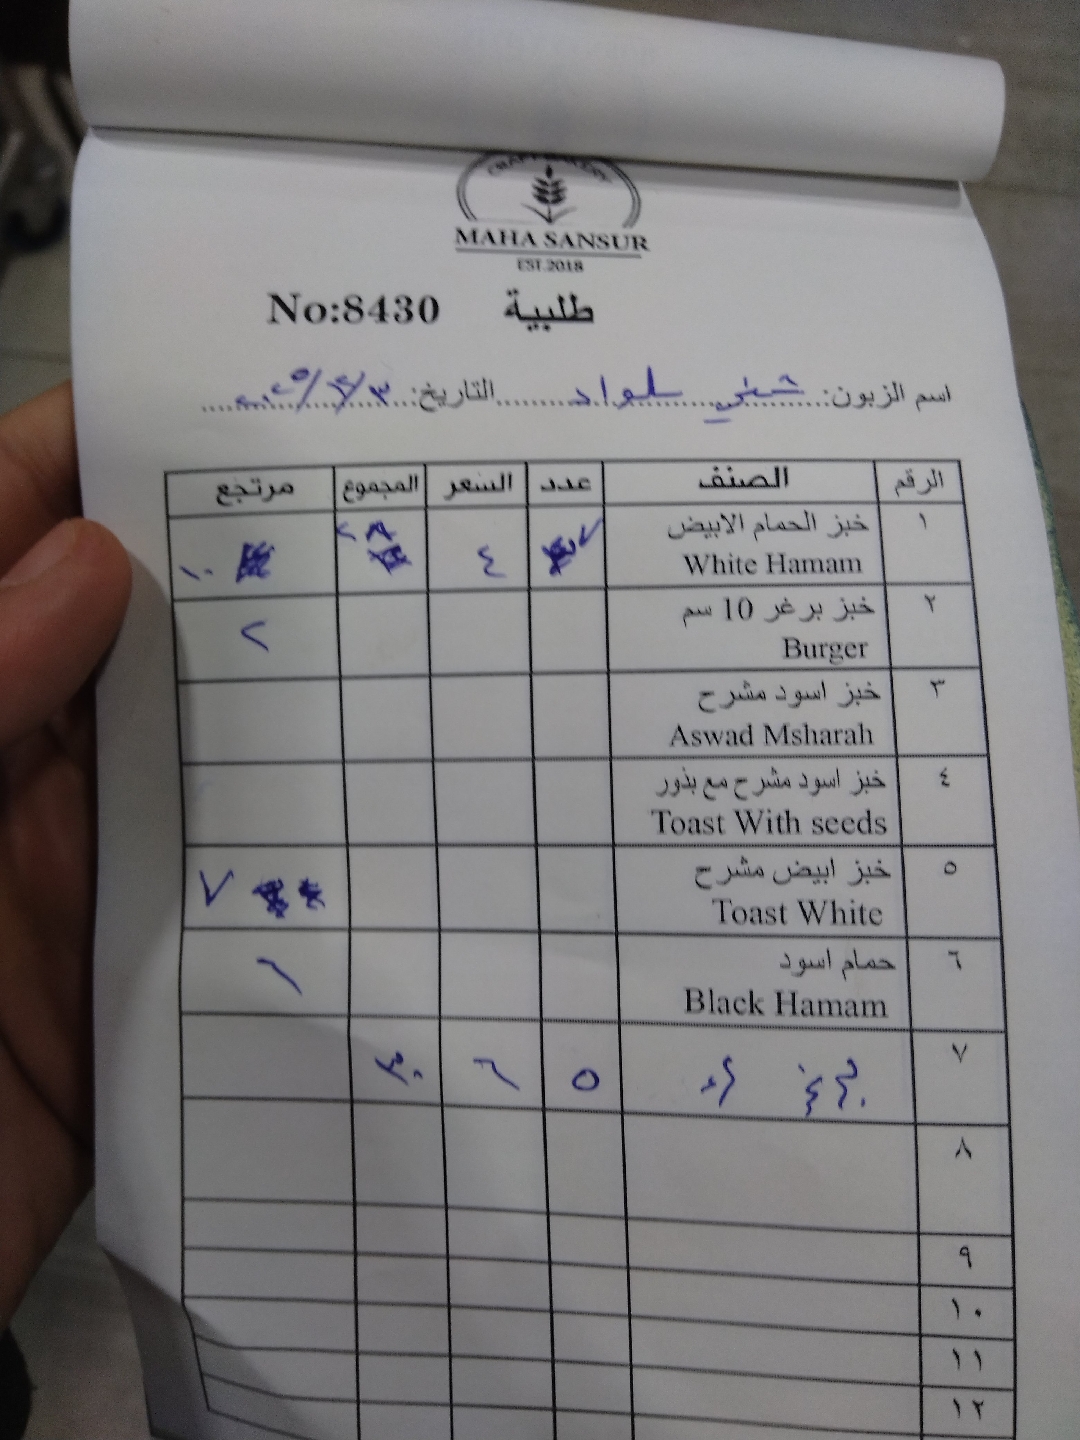 CRAFT BAKERY
MAHA SANSUR
EST.2018
No:8430 طلبية
اسم الزبون: سلواد التاريخ: ٣/٤/
الرقم الصنف عدد السعر المجموع مرتجع
١ خبز الحمام الابيض ٧ ٤ ٢٨ ١٠
White Hamam
٢ خبز برغر 10 سم ٢
Burger
٣ خبز اسود مشرح
Aswad Msharah
٤ خبز اسود مشرح مع بذور
Toast With seeds
٥ خبز ابيض مشرح ٧
Toast White
٦ حمام اسود ١
Black Hamam
٧ ٥ ٦ ٣٠
٨
٩
١٠
١١
١٢